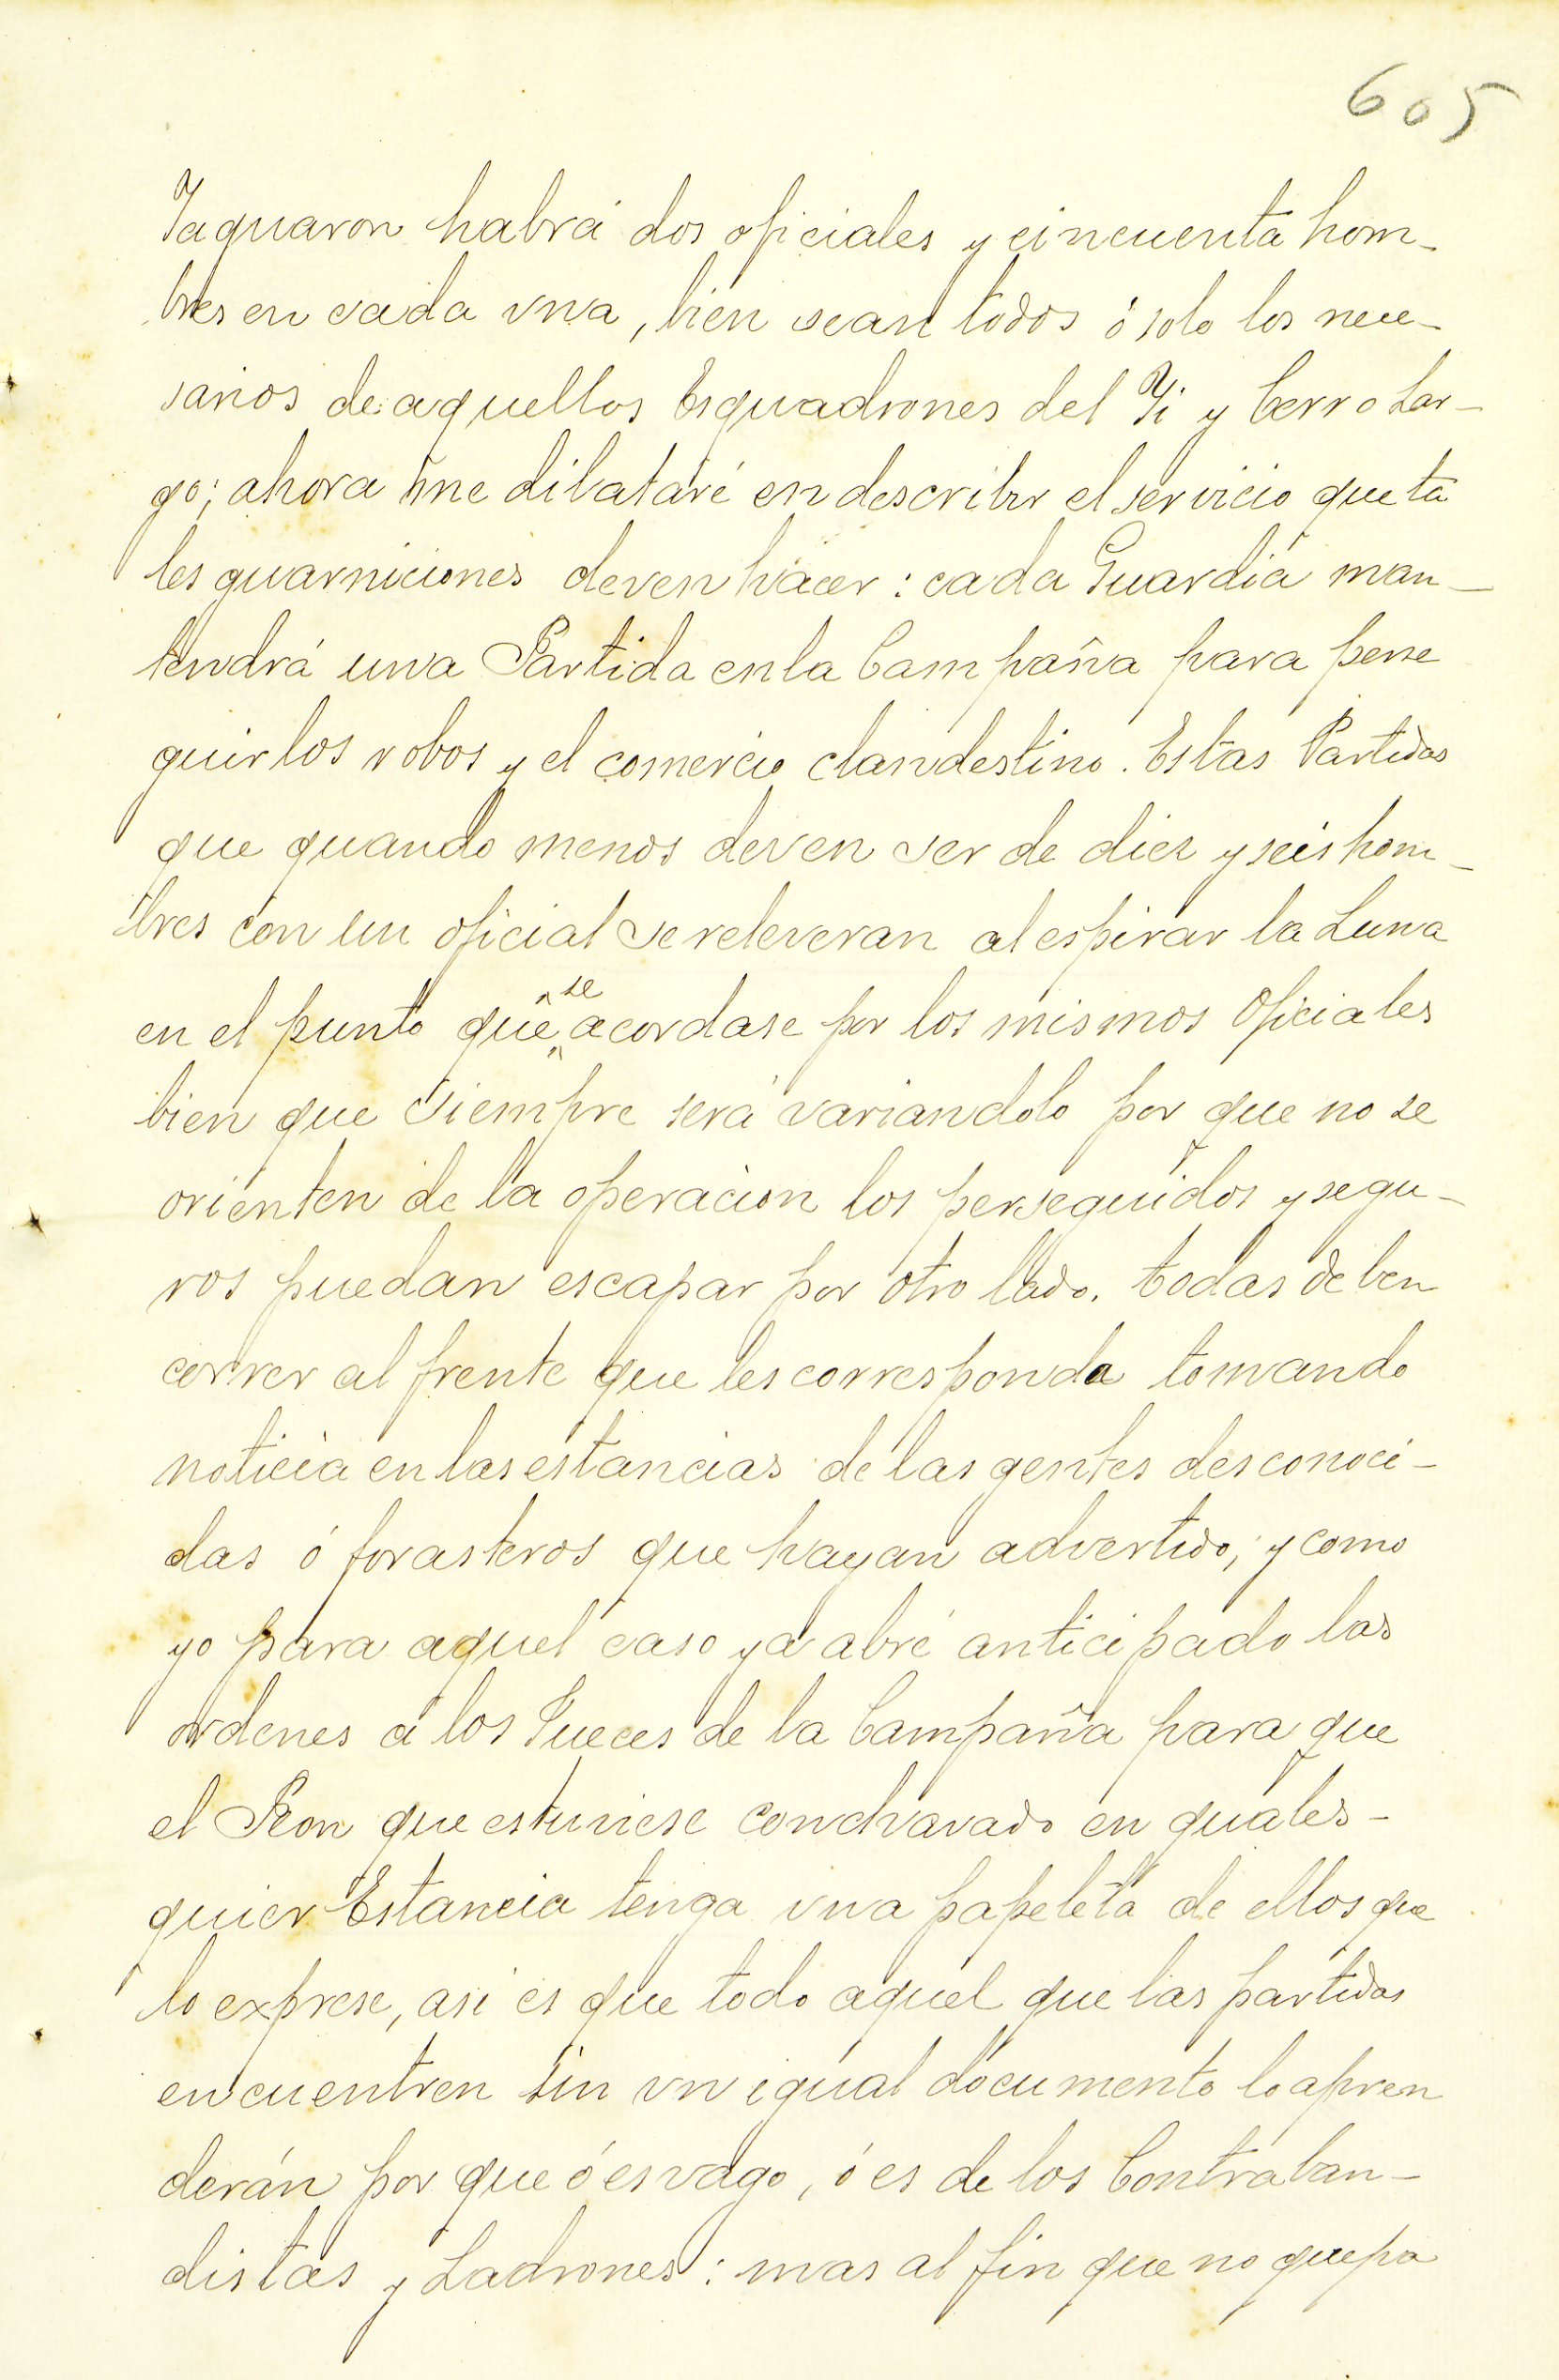 605
Yaguaron habrá dos oficiales y cincuenta hom-
bres en cada vna, bien sean todos ó solo los nece-
sarios de aquellos Esquadrones del Yi y Cerro Lar-
go; ahora me dilataré en describir el servicio que ta
les guarniciones deven hacer: cada Guardia man-
tendrá una Partida en la Campaña para perse
guir los robos y el comercio clandestino. Estas Partidas
que quando menos deven ser de diez y seis hom-
bres con un oficial se releveran al espirar la Luna
en el punto que se acordase por los mismos Oficiales
bien que siempre será variandolo por que no se
orienten de la operacion los perseguidos y segu-
ros puedan escapar por otro lado. todas deben
correr al frente que les corresponda tomando
noticia en las estancias de las gentes desconoci-
das ó forasteros que hayan advertido; y como
yo para aquel caso ya abré anticipado las
ordenes á los Jueces de la Campaña para que
el Peon que estuviese conchavado en quales-
quier Estancia tenga vna papeleta de ellos que
lo exprese, asi es que todo aquel que las partidas
encuentren sin vn igual documento lo apren
derán por que ó es vago, ó es de los Contraban-
distas y Ladrones: mas al fin que no quepa